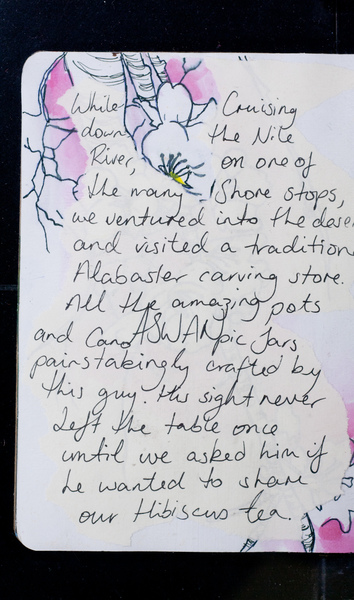 While Cruising
down the Nile
River, on one of
the many Shore stops,
we ventured into the deser
and visited a tradition
Alabaster carving store.
All the amazing pots
and Cano ASWAN pic Jars
painstakingly crafted by
this guy. His sight never
Left the table once
until we asked him if
he wanted to share
our Hibiscus tea.